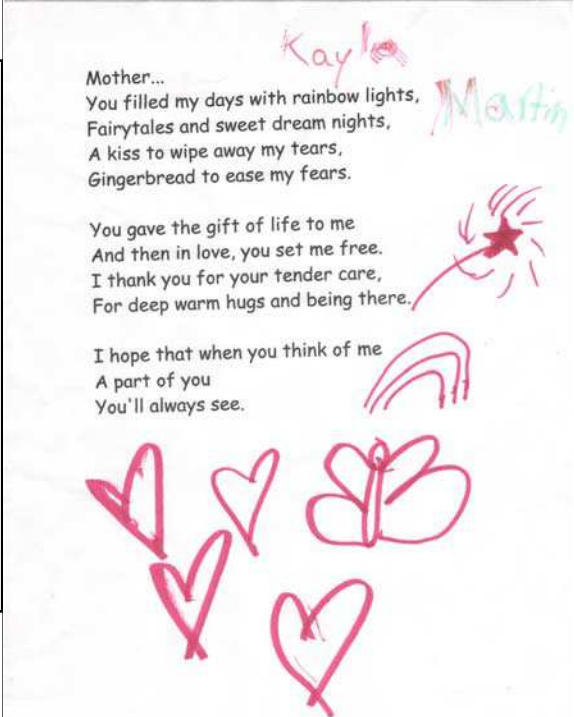 Kayla
Martin
Mother...
You filled my days with rainbow lights,
Fairytales and sweet dream nights,
A kiss to wipe away my tears,
Gingerbread to ease my fears.
You gave the gift of life to me
And then in love, you set me free.
I thank you for your tender care,
For deep warm hugs and being there.
I hope that when you think of me
A part of you
You'll always see.